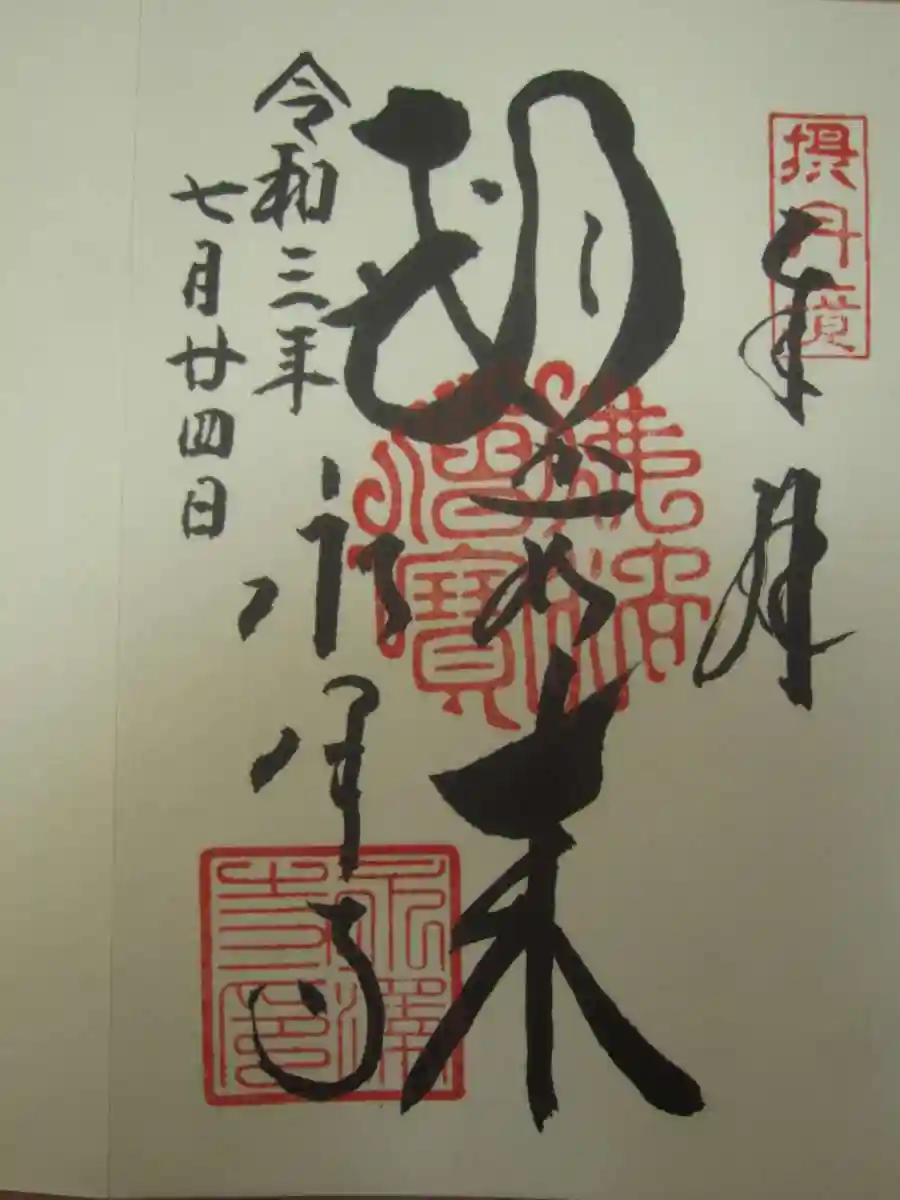 摂丹境
奉拝
釈迦如来
佛法僧寶
令和三年
七月廿四日
永澤寺
永澤寺印